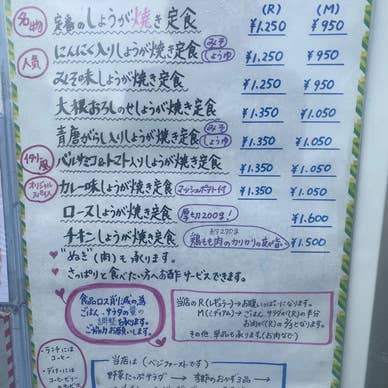 (R) (M)
名物 定番のしょうが焼き定食 ¥1.250 ¥950
人気 にんにく入りしょうが焼き定食 みそ しょうゆ ¥1.250 ¥950
みそ味しょうが焼き定食 ¥1.250 ¥950
大根おろしのせしょうが焼き定食 ¥1.350 ¥1.050
青唐がらし入りしょうが焼き定食 みそ しょうゆ ¥1.350 ¥1.050
イタリー風 バルサミコ&トマト入りしょうが焼き定食 ¥1.350 ¥1.050
オリジナルスパイス カレー味しょうが焼き定食 マッシュポテト付 ¥1.350 ¥1.050
ロースしょうが焼き定食 厚切200g! ¥1.600
チキンしょうが焼き定食 鶏もも肉のカリカリの皮が旨〜 ¥1.500
"ぬき"(肉)も承ります。
さっぱりと食べたい方へお酢サービスできます。
食品ロス削減の為
ごはん、サラダの量の
調整を承ります。
ご協力お願いします。
当店のR(レギュラー)はお腹いっぱいになります。
M(ミディアム)は ごはん、サラダが(R)の半分
お肉が(R)の2/3となります。
その他、単品も承ります(お肉など)
ランチには
コーヒー
ディナーには
コーヒーゼリー
当店は(ベジファーストです)
野菜たっぷりサラダ